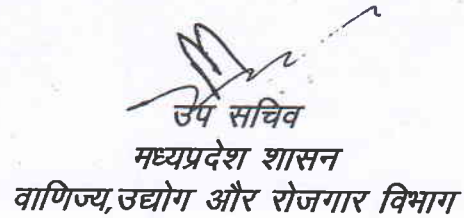 उप सचिव
मध्यप्रदेश शासन
वाणिज्य,उद्योग और रोजगार विभाग